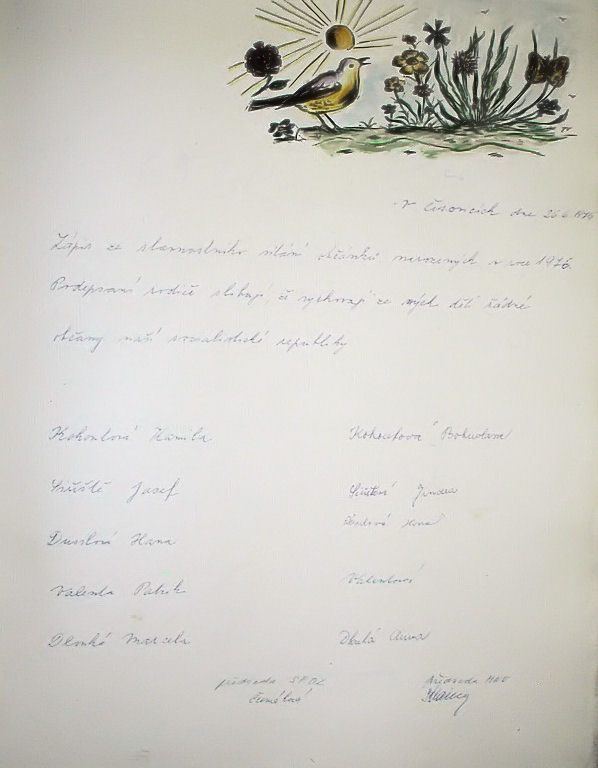 V Číšovicích dne 26.6.1976
Zápis ze slavnostního vítání občánků narozených v roce 1976.
Podepsaní rodiče slibují, že vychovají ze svých dětí řádné
občany naší socialistické republiky
Kohoutová Kamila Kohoutová Bohuslava
Josef
Hana Hana
Valenta Patrik Valentová
Dlouhá Marcela Dlouhá Anna
předseda SPOZ předseda MNV